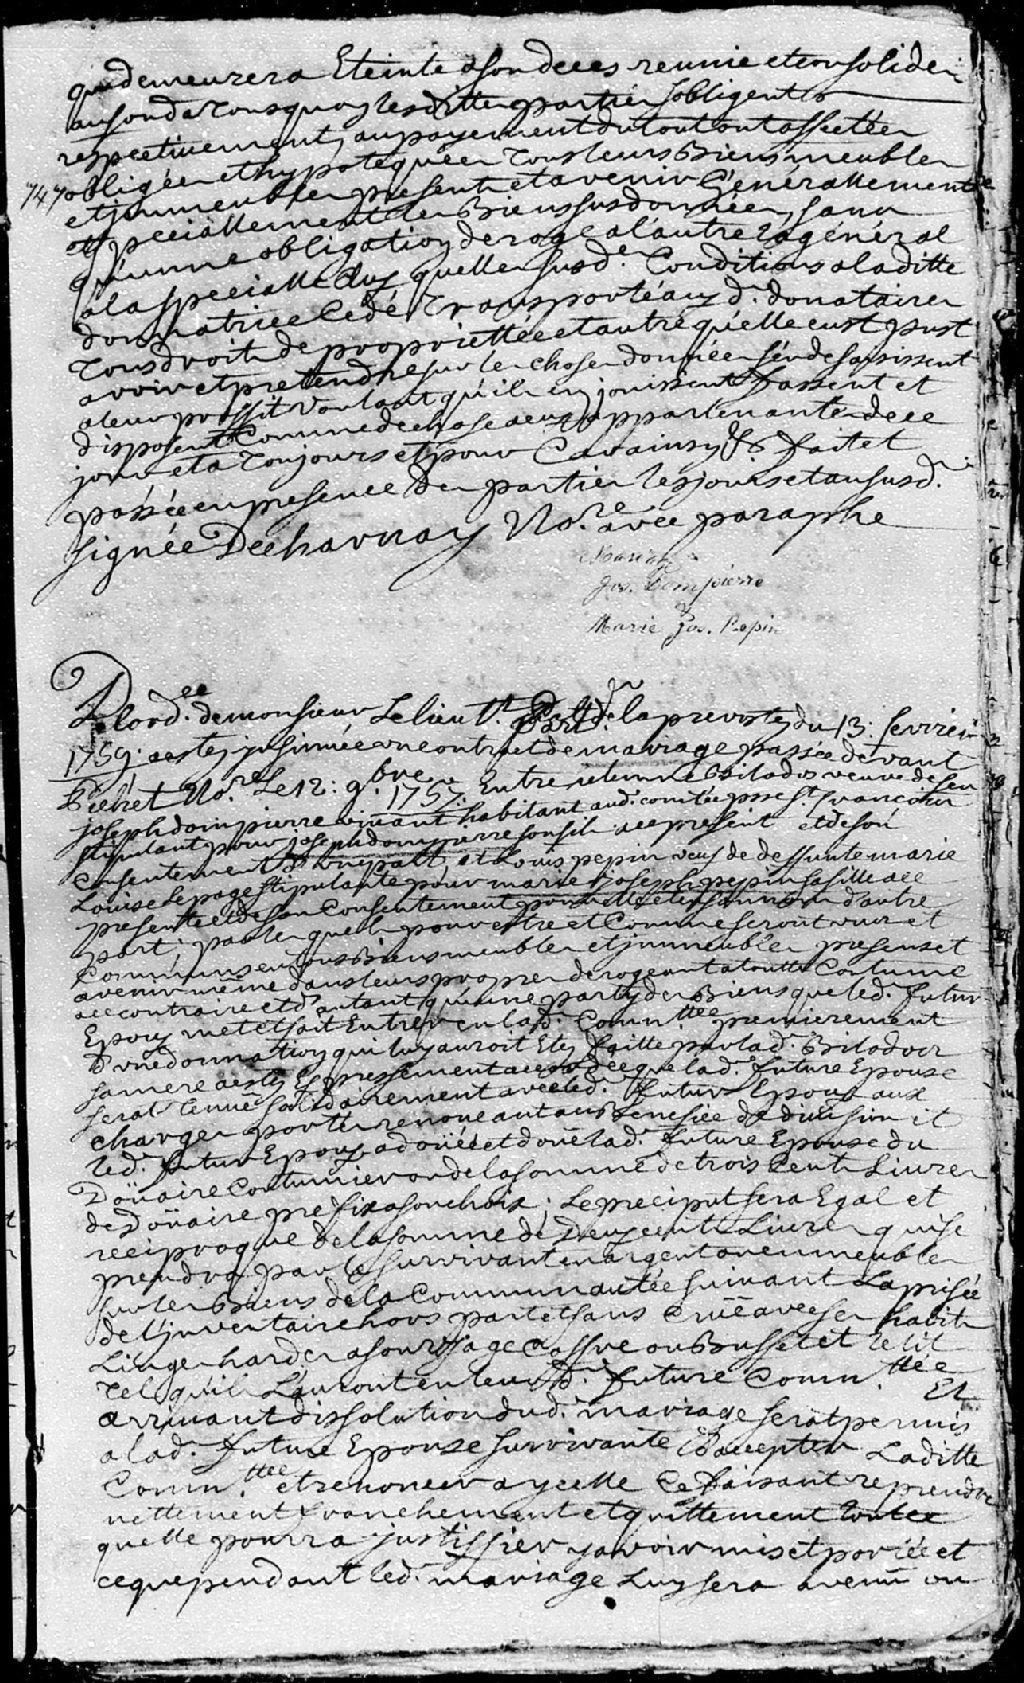 qui demeurera Eteinte a son deces reunie et consolidée
au fond a Tous quoy les ditte partier sobligent
respectivement au payement du tout ont affectée
747 obligée et hypotequée Tous leurs Biens meubler
et jmmeubler present et avenir Générallement
et specialement les Biens susdonnée, sans
qu'unne obligation deroge a l'autre La général
a la specialle Aux quelle susd. Conditions a laditte
donnatrice Cédé Transporté aux d. donatairer
Tous droit de proprietté et autre qu'elle eust pust
avoir et pretendre sur le choser donnéer s'en desaisissent
a leur proffit voulant qu'il en jouissent fassent et
disposent Comme de chose a eux appartenante de ce
jour et a Toujours et pour Car ainsy &. fait et
passée en presence der partier les jours et an susd.
Signée Decharnay No.re avec paraphe
Mariage
Jos. Dompierre
&
Marie Jos. Pepin
De lord.ce de monsieur Le lieut. Part. de la prevosté du 13: fevrier
1759: a esté jnsinuée un contract de mariage passée devant
No.re Le 12: 9.bre 1757. Entre veuve de feu
joseph dompierre vivant habitant aud. comtée St. francoise
stipulant pour joseph dompierre son fils a ce present et de son
consentement D'une part, et Louis pepin veuf de deffunte marie
Louise Lepage stipulante pour marie joseph pepin sa fille a ce
presente et de son Consentement pour elle et en son nom d'autre
part; par le quel pour estre et Comme seront unir et
Communs en tous Biens meubler et jmmeubler present et
avenir meme dans leurs propre derogeant a toutte Coutume
a ce contraire et d'autant qu'une party de Biens que led. futur
Epoux met et fait Entrer en lad. Comm.ttée premierement
D'une donnation qui luy auroit Etés faitte par lad.
sa mere a estés Expressement accordé que lad. future Epouse
serat tenue solidairement avec led. futur Epoux aux
charger porter renoncant au Benefice de division it
led. futur Epoux a doüée et doüe lad. future Epouse du
Doüaire Coutumier ou de la somme de trois Cent Livrer
de Doüaire prefix a son choix; Le preciput sera Egal et
reciproque de la somme de Deux cent Livrer qui se
prendra par le survivant en argent ou en meubler
sur ler Biens de la Communautée suivant La prisée
de l'jnventaire hors part et sans Cruë avec ser habit
Linger harder a son usage Cassue ou Buffet et le lit
Tel qu'il Lauront en leur d. future Comm.ttée Et
arrivant dissolution dud. mariage serat permis
a lad. future Epouse survivante D'accepter Laditte
Comm.ttée et renoncer a ycelle Ce faisant reprendre
nettement franchement et quittement toutce
quelle pourra justiffier y avoir mis et portéé et
ce que pendant led. mariage Luy sera avenu ou